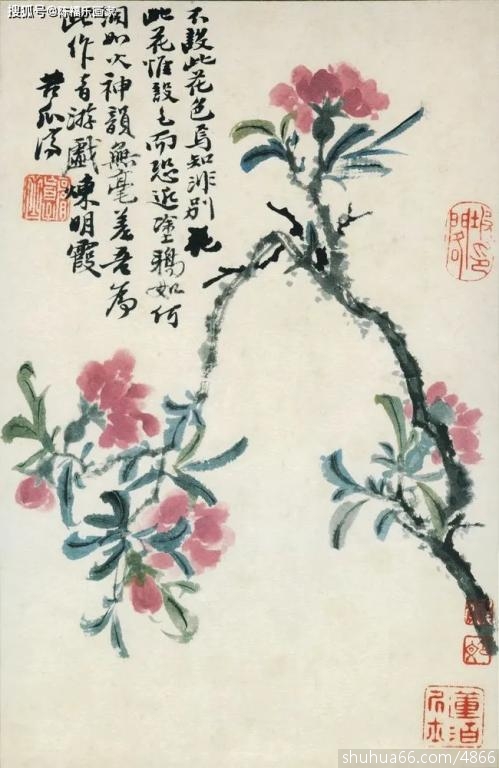 搜狐号@陈福乐画家
不設此花色焉知非別花
此花惟設色而恐近塗鴉如何
如火神韻無毫差吾為
此作者游戲煉明霞
苦瓜濟
shuhua66.com/4866